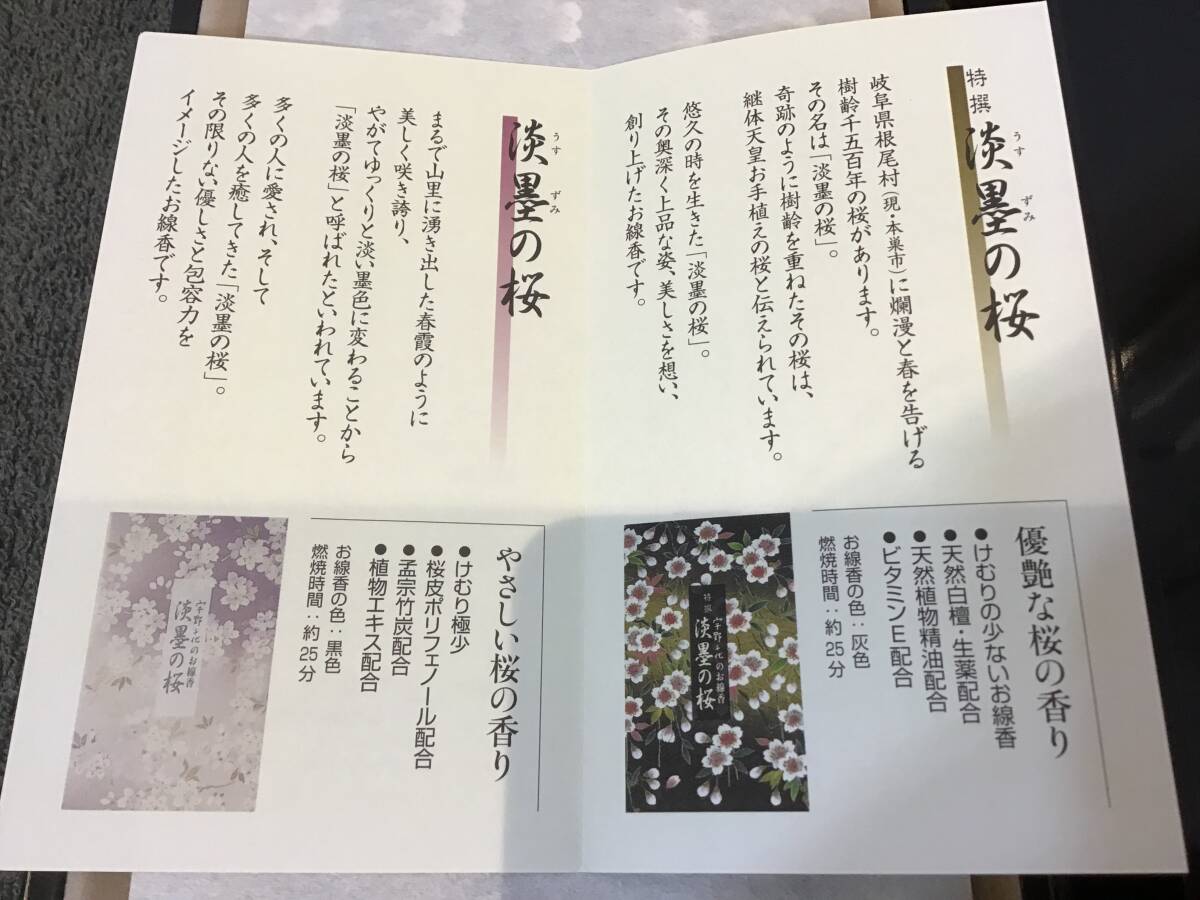 特撰
淡墨の桜
うすずみ
岐阜県根尾村（現・本巣市）に爛漫と春を告げる
樹齢千五百年の桜があります。
その名は「淡墨の桜」。
奇跡のように樹齢を重ねたその桜は、
継体天皇お手植えの桜と伝えられています。
悠久の時を生きた「淡墨の桜」。
その奥深く上品な姿、美しさを想い、
創り上げたお線香です。
優艶な桜の香り
●けむりの少ないお線香
●天然白檀・生薬配合
●天然植物精油配合
●ビタミンE配合
お線香の色：灰色
燃焼時間：約25分
宇野千代のお線香
特撰
淡墨の桜
淡墨の桜
うすずみ
まるで山里に湧き出した春霞のように
美しく咲き誇り、
やがてゆっくりと淡い墨色に変わることから
「淡墨の桜」と呼ばれたといわれています。
多くの人に愛され、そして
多くの人を癒してきた「淡墨の桜」。
その限りない優しさと包容力を
イメージしたお線香です。
やさしい桜の香り
●けむり極少
●桜皮ポリフェノール配合
●孟宗竹炭配合
●植物エキス配合
お線香の色：黒色
燃焼時間：約25分
宇野千代のお線香
淡墨の桜